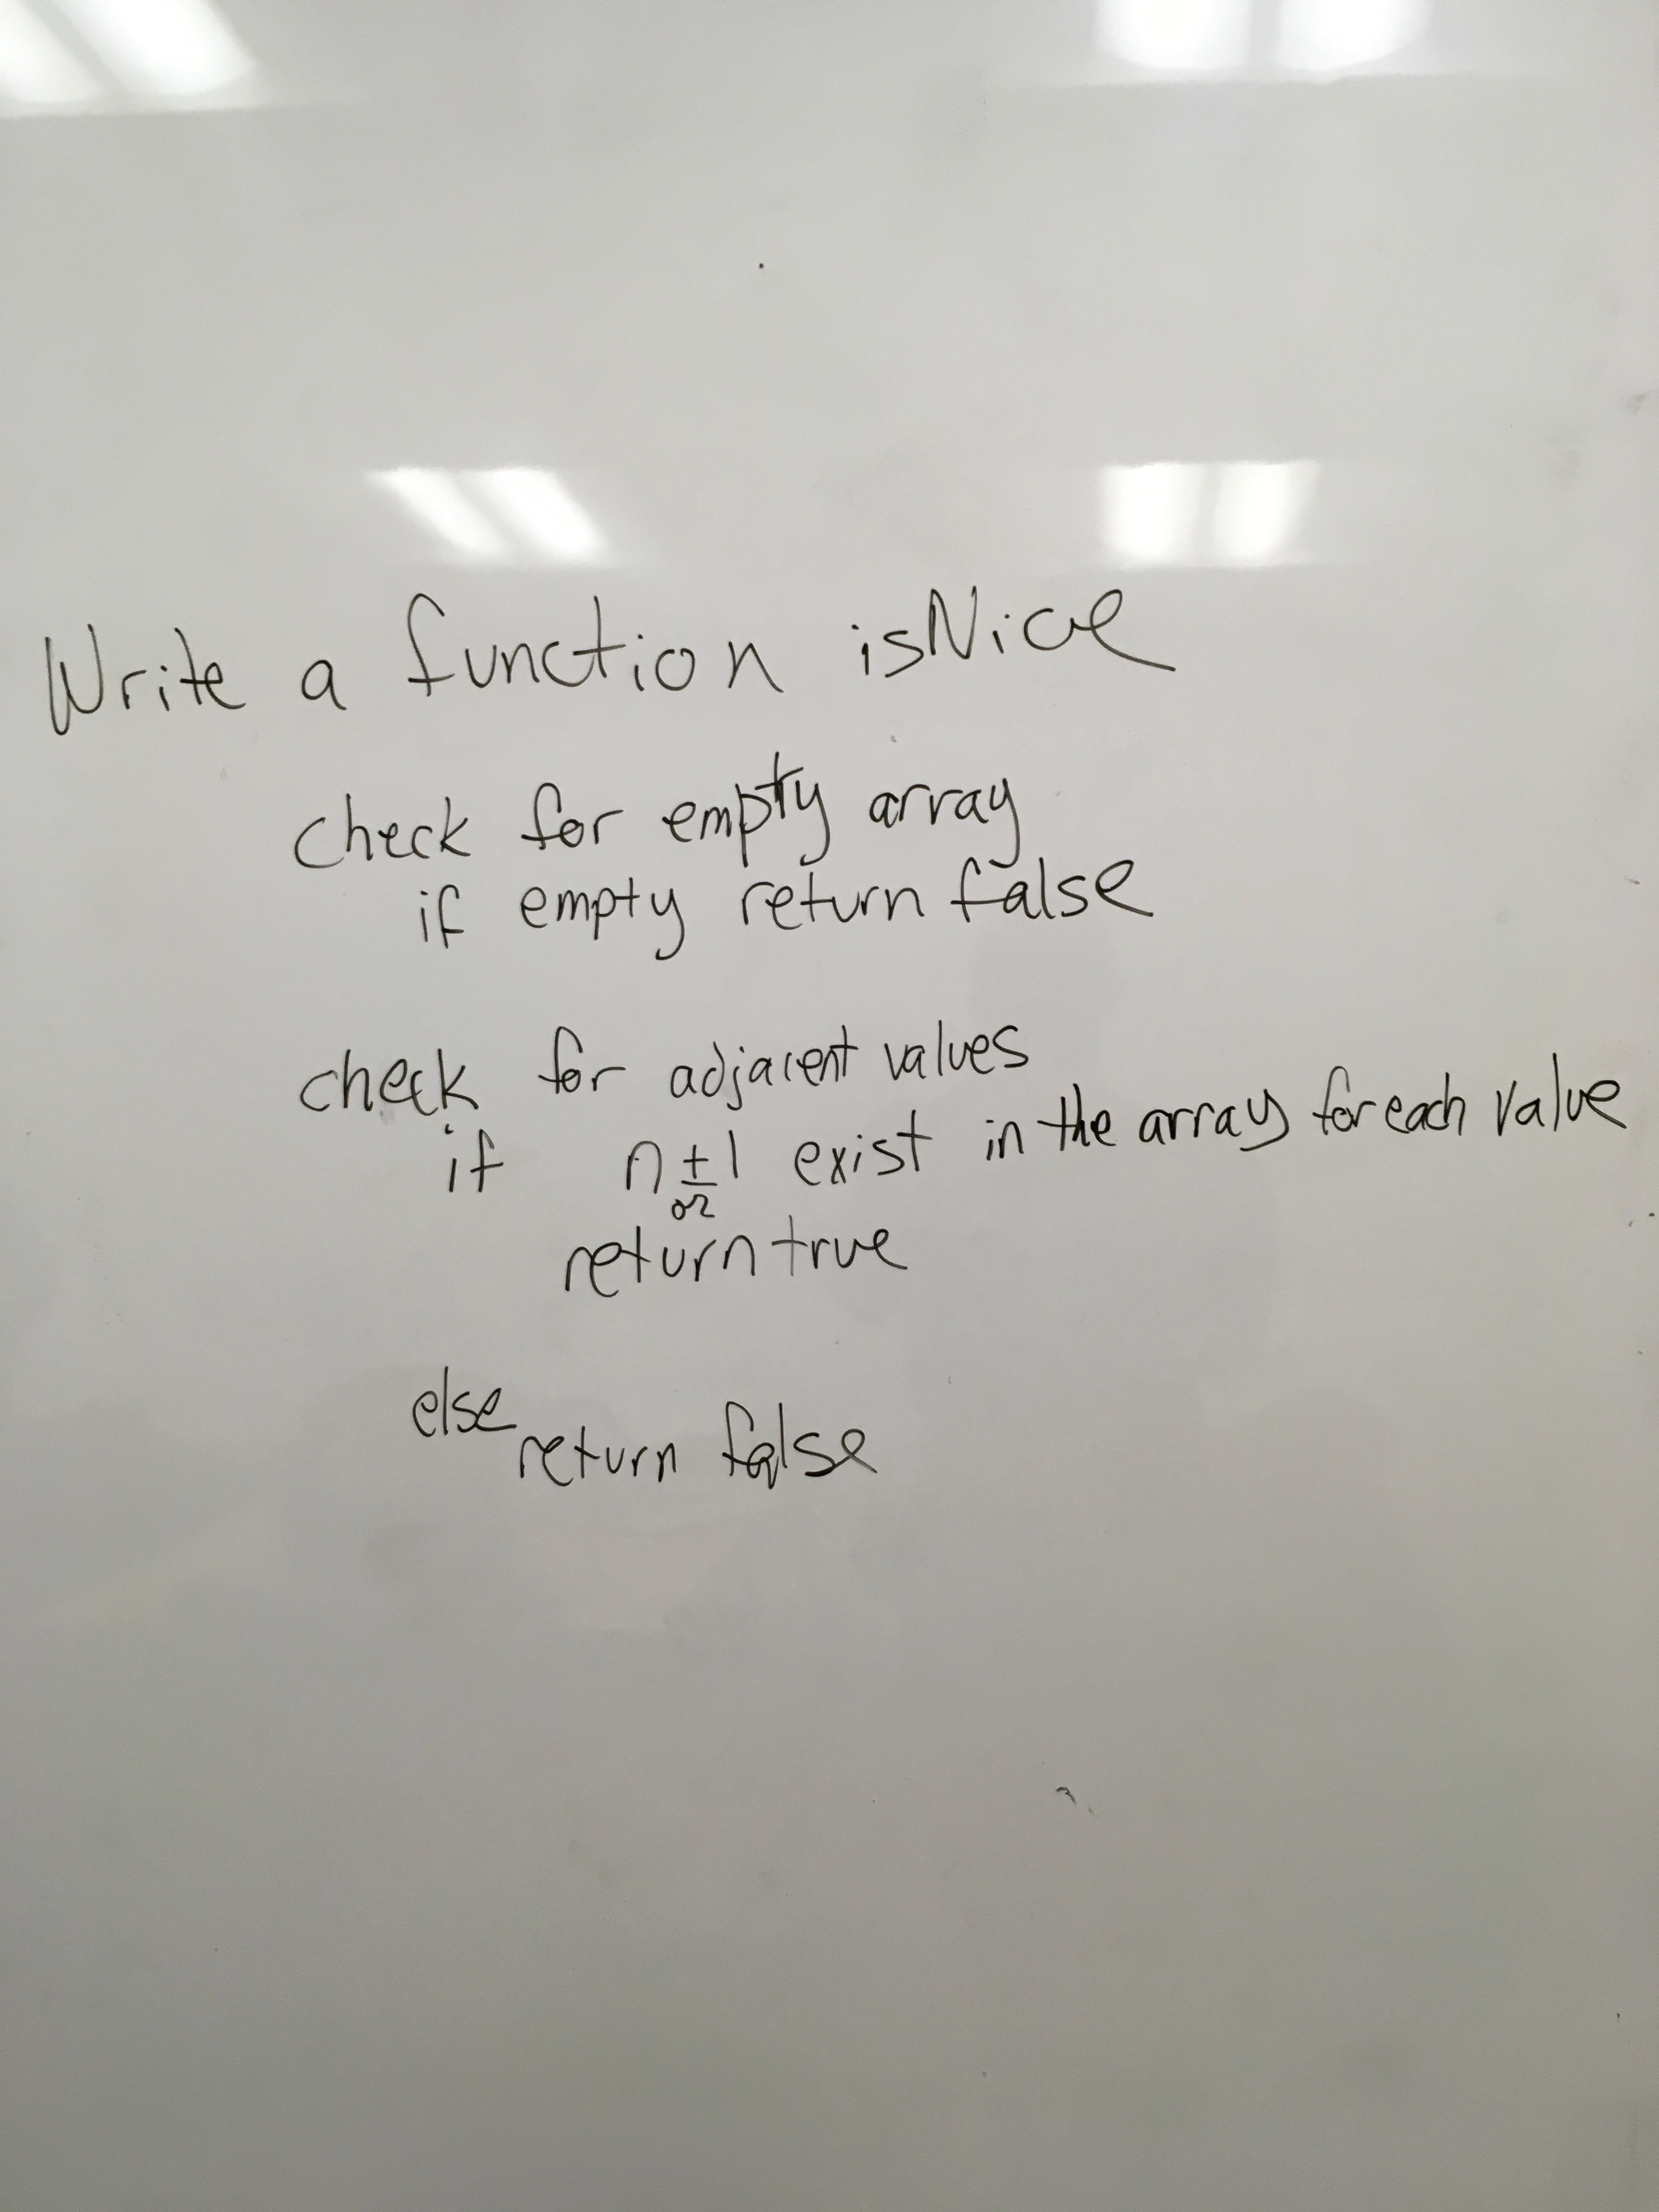 Write a function isNice
check for empty array
if empty return false
check for adjacent values
if n ± 1 exist in the array for each value
or
return true
else
return false